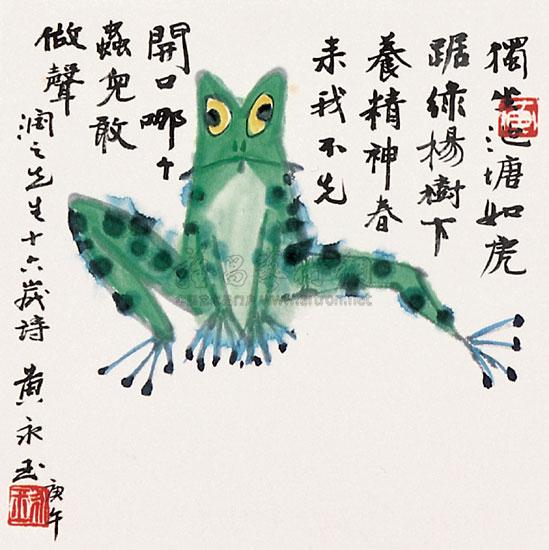 獨坐池塘如虎
踞綠楊樹下
養精神春
来我不先
開口哪个
蟲兒敢
做聲
润之先生十六歲詩
黄永玉
庚午